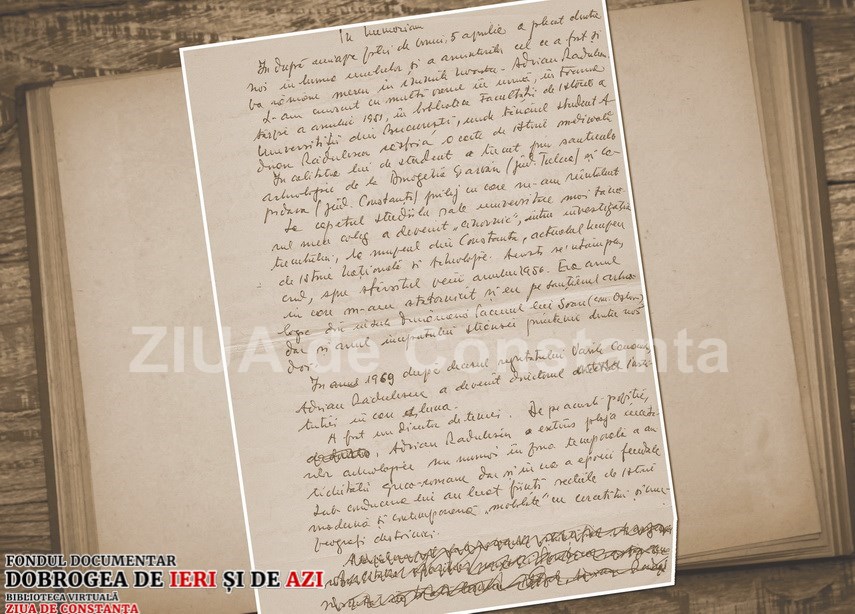 In memoriam
În după amiaza zilei de vineri, 5 aprilie a plecat dintre
noi în lumea umbrelor și a amintirilor cel ce a fost și
va rămâne mereu în inimile noastre - Adrian Rădulescu.
L-am cunoscut cu multă vreme în urmă, în toamna
târzie a anului 1951, în biblioteca Facultății de Istorie a
Universității din București, unde tânărul student A-
drian Rădulescu răsfoia o carte de istorie medievală
În calitatea lui de student a trecut prin șantierele
arheologice de la Dinogetia Garvăn (jud. Tulcea) și Ca-
pidava (jud. Constanța) prilej cu care ne-am reîntâlnit
La capătul studiilor sale universitare mai tână-
rul meu coleg a devenit "cihovnic", întru investigația
trecutului, la muzeul din Constanța, actualul muzeu
de istorie națională și arheologie. Acest se întâmpla,
cred, spre sfârșitul verii anului 1956. Era anul
în care m-am statornicit și eu pe șantierul arheo-
logic din insula dunăreană Păcuiul lui Soare (com. Ostrov)
dar și anul începutului strânsei prietenii dintre noi
doi.
În anul 1969 după decesul regretatului Vasile Canarache
Adrian Rădulescu a devenit directorul insti-
tuției în care
A fost un director de temei. De pe această poziție,
Adrian Rădulescu a extins plaja cercetă-
rilor arheologice nu numai în zona temporală a an-
tichității greco-romane dar și în cea a epocii feudale
Sub conducerea lui au luat ființă secțiile de istorie
modernă și contemporană "mobilate" cu cercetători și muze-
ografi destoinici.
ZIUA de Constanta
FONDUL DOCUMENTAR
DOBROGEA DE IERI ȘI DE AZI
BIBLIOTECA VIRTUALĂ
ZIUA DE CONSTANTA